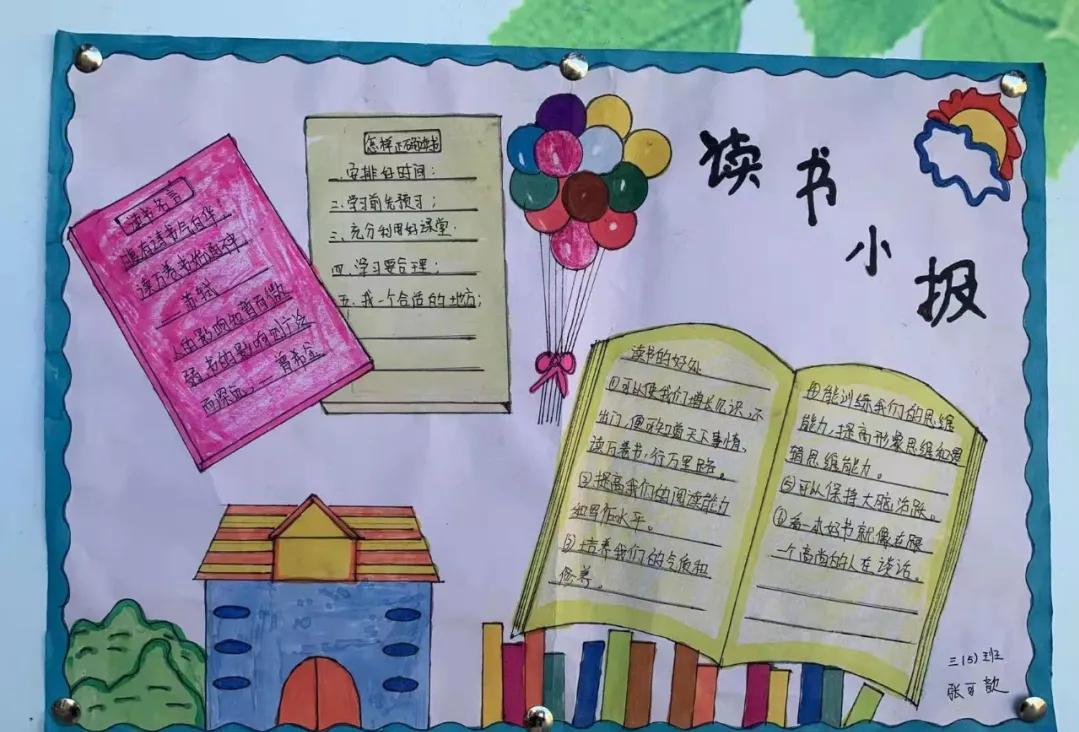 读书小报
读书名言
腹有诗书气自华
读万卷书始通神
——苏轼
人的影响短暂而微
弱书的影响则广泛
而深远。——普希金
怎样正确读书
一、安排好时间;
二、学习前先预习;
三、充分利用好课堂.
四、学习要合理;
五、找一个合适的地方;
读书的好处
①可以使我们增长见识,不
出门,便可知道天下事情,
读万卷书,行万里路。
②提高我们的阅读能力
和写作水平。
③培养我们的气质和
修养。
④能训练我们的思维
能力,提高形象思维和逻
辑思维能力。
⑤可以保持大脑活跃。
⑥看一本好书就像在跟
一个高尚的人在谈话。
三(5)班
张可歆